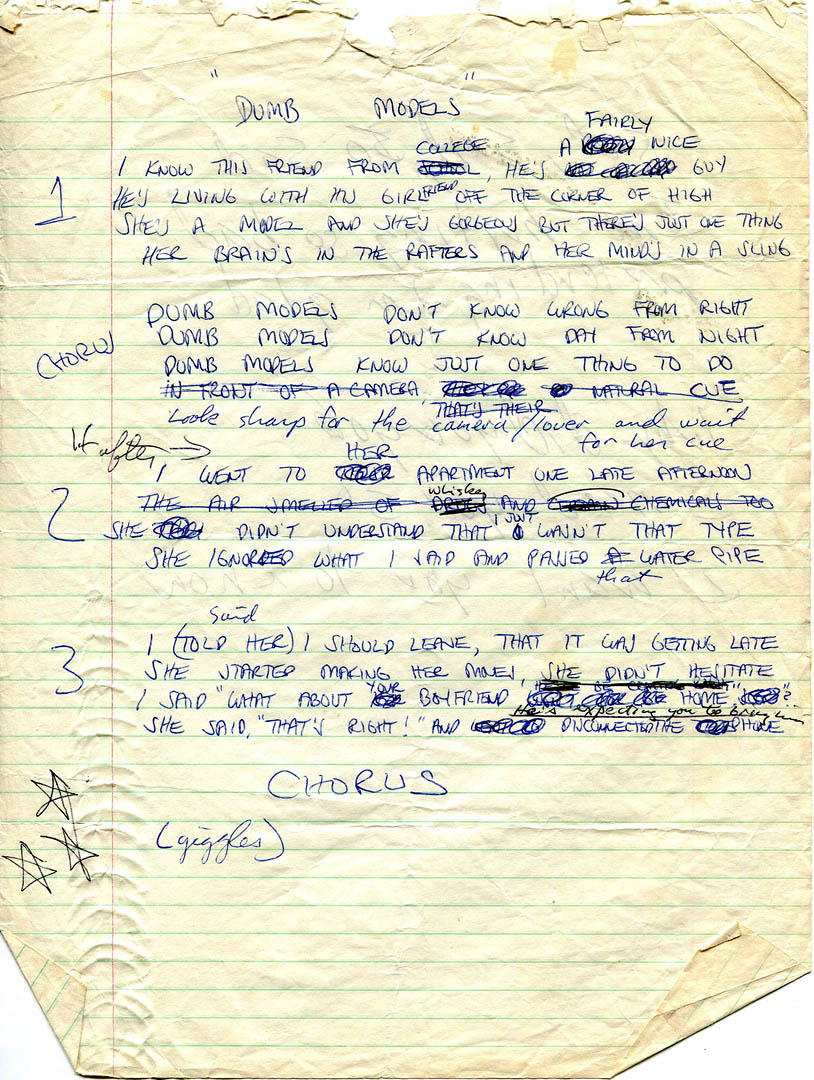 "DUMB MODELS"
FAIRLY
COLLEGE A NICE
1 I KNOW THIS FRIEND FROM SCHOOL, HE'S GUY
HE'S LIVING WITH HIS GIRLFRIEND OFF THE CORNER OF HIGH
SHE'S A MODEL AND SHE'S GORGEOUS BUT THERE'S JUST ONE THING
HER BRAIN'S IN THE RAFTERS AND HER MIND'S IN A SLING
DUMB MODELS DON'T KNOW WRONG FROM RIGHT
CHORUS DUMB MODELS DON'T KNOW DAY FROM NIGHT
DUMB MODELS KNOW JUST ONE THING TO DO
IN FRONT OF A CAMERA NATURAL CUE
THAT'S THEIR
Look sharp for the camera/lover and wait
for her cue
HER
I WENT TO APARTMENT ONE LATE AFTERNOON
whiskey
2 THE AIR SMELLED OF AND CHEMICALS TOO
I JUST
SHE DIDN'T UNDERSTAND THAT WASN'T THAT TYPE
SHE IGNORED WHAT I SAID AND PASSED A WATER PIPE
that
Said
I (TOLD HER) I SHOULD LEAVE, THAT IT WAS GETTING LATE
3 SHE STARTED MAKING HER MOVES, SHE DIDN'T HESITATE
YOUR
I SAID "WHAT ABOUT BOYFRIEND HOME"?
He's expecting you to bring him
SHE SAID, "THAT'S RIGHT!" AND DISCONNECTED THE PHONE
CHORUS
(giggles)